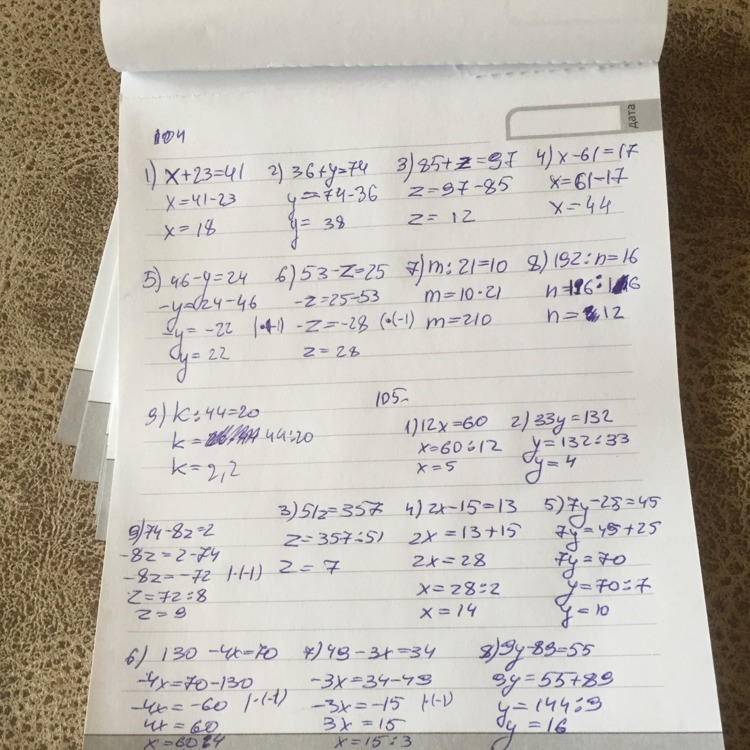 дата
104
1) x+23=41 2) 36+y=74 3) 85+z=97 4) x-61=17
x=41-23 y=74-36 z=97-85 x=61-17
x=18 y=38 z=12 x=44
5) 46-y=24 6) 53-z=25 7) m:21=10 8) 192:n=16
-y=24-46 -z=25-53 m=10·21
-y=-22 |·(-1) -z=-28 (·(-1) m=210 n=12
y=22 z=28
9) k:44=20 105.
k=44:20 1) 12x=60 2) 33y=132
k=2,2 x=60:12 y=132:33
x=5 y=4
3) 51z=357 4) 2x-15=13 5) 7y-25=45
9) 74-8z=2 z=357:51 2x=13+15 7y=45+25
-8z=2-74 z=7 2x=28 7y=70
-8z=-72 |·(-1) x=28:2 y=70:7
z=72:8 x=14 y=10
z=9
6) 130-4x=70 7) 49-3x=34 8) 9y-89=55
-4x=70-130 -3x=34-49 9y=55+89
-4x=-60 |·(-1) -3x=-15 |·(-1) y=144:9
4x=60 3x=15 y=16
x=60:4 x=15:3